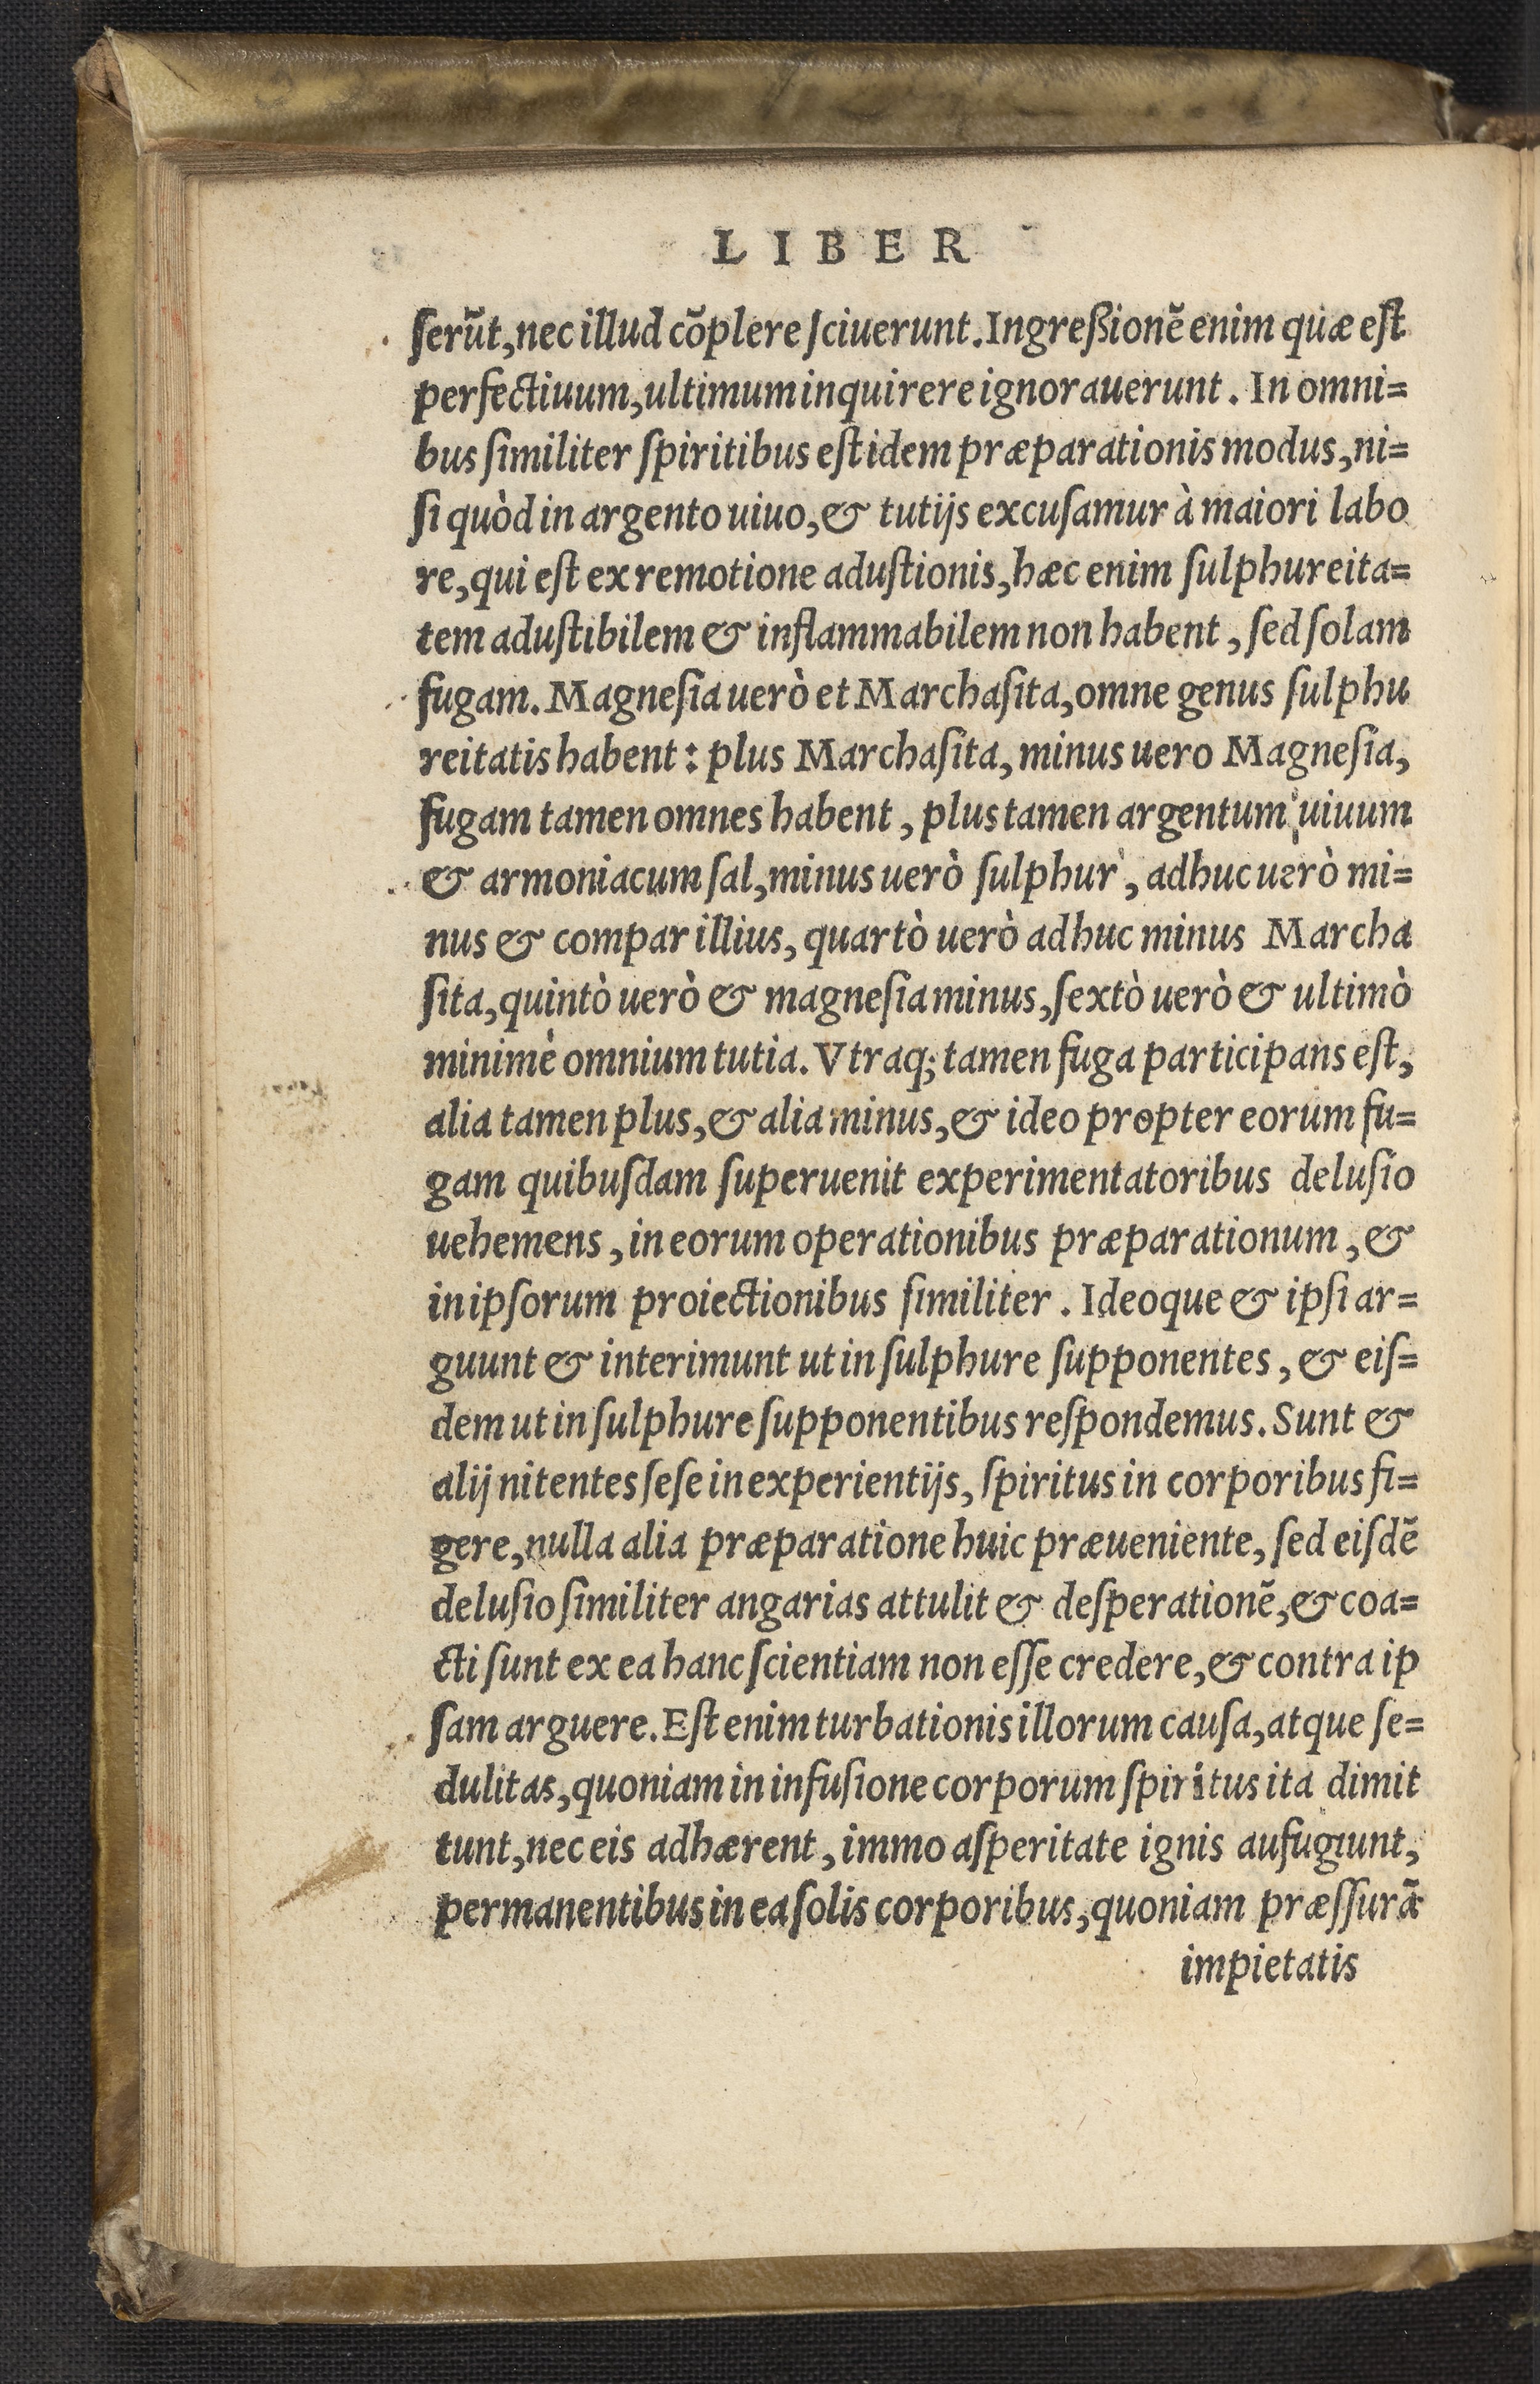 LIBER
ſerũt, nec illud cõplere ſciuerunt. Ingreßionẽ enim quæ eſt
perfectiuum, ultimum inquirere ignorauerunt. In omni=
bus ſimiliter ſpiritibus eſt idem præparationis modus, ni=
ſi quòd in argento uiuo, & tutijs excuſamur à maiori labo
re, qui eſt ex remotione aduſtionis, hæc enim ſulphureita=
tem aduſtibilem & inflammabilem non habent, ſed ſolam
fugam. Magneſia uerò et Marchaſita, omne genus ſulphu
reitatis habent: plus Marchaſita, minus uero Magneſia,
fugam tamen omnes habent, plus tamen argentum uiuum
& armoniacum ſal, minus uerò ſulphur, adhuc uerò mi=
nus & compar illius, quartò uerò adhuc minus Marcha
ſita, quintò uerò & magneſia minus, ſextò uerò & ultimò
minimè omnium tutia. Vtraq; tamen fuga participans eſt,
alia tamen plus, & alia minus, & ideo propter eorum fu=
gam quibuſdam ſuperuenit experimentatoribus deluſio
uehemens, in eorum operationibus præparationum, &
in ipſorum proiectionibus ſimiliter. Ideoque & ipſi ar=
guunt & interimunt ut in ſulphure ſupponentes, & eiſ=
dem ut in ſulphure ſupponentibus reſpondemus. Sunt &
alij nitentes ſeſe in experientijs, ſpiritus in corporibus fi=
gere, nulla alia præparatione huic præueniente, ſed eiſdẽ
deluſio ſimiliter angarias attulit & deſperationẽ, & coa=
cti ſunt ex ea hanc ſcientiam non eſſe credere, & contra ip
ſam arguere. Eſt enim turbationis illorum cauſa, atque ſe=
dulitas, quoniam in infuſione corporum ſpiritus ita dimit
tunt, nec eis adhærent, immo aſperitate ignis aufugiunt,
permanentibus in ea ſolis corporibus, quoniam præſſurã
impietatis